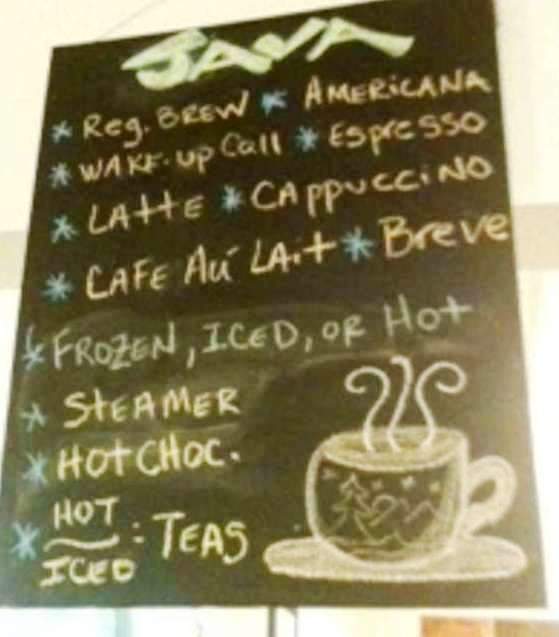 JAVA
* Reg. BREW * AMERiCANA
* WAKE-up Call * Espresso
* LAttE * CAppuccino
* CAFE Aú LAit * Breve
* FROZEN, ICED, OR Hot
* StEAMER
* HOt CHOC.
* HOT
ICED : TEAS